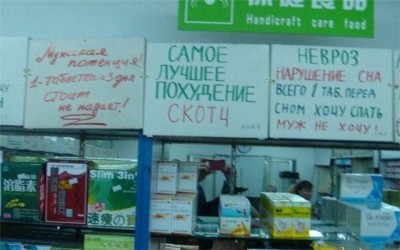 保健食品
Handicraft care food
Мужская
потенция!
1 таблетка = 3 дня
стоит
не падает!
САМОЕ
ЛУЧШЕЕ
ПОХУДЕНИЕ
СКОТЧ
НЕВРОЗ
НАРУШЕНИЕ СНА
ВСЕГО 1 ТАБ. ПЕРЕД
СНОМ ХОЧУ СПАТЬ
МУЖ НЕ ХОЧУ!
溶脂素
Slim 3in1
速瘦の寶